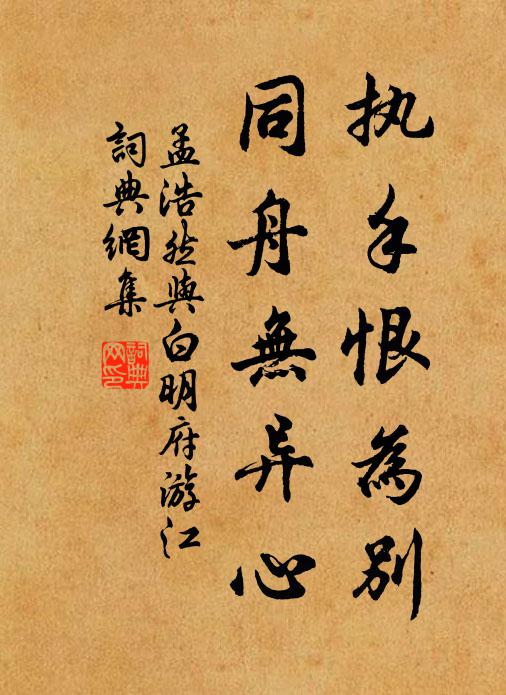 执手恨為别
同舟無异心
孟浩然與白明府游江
詞典網集
詞典網印